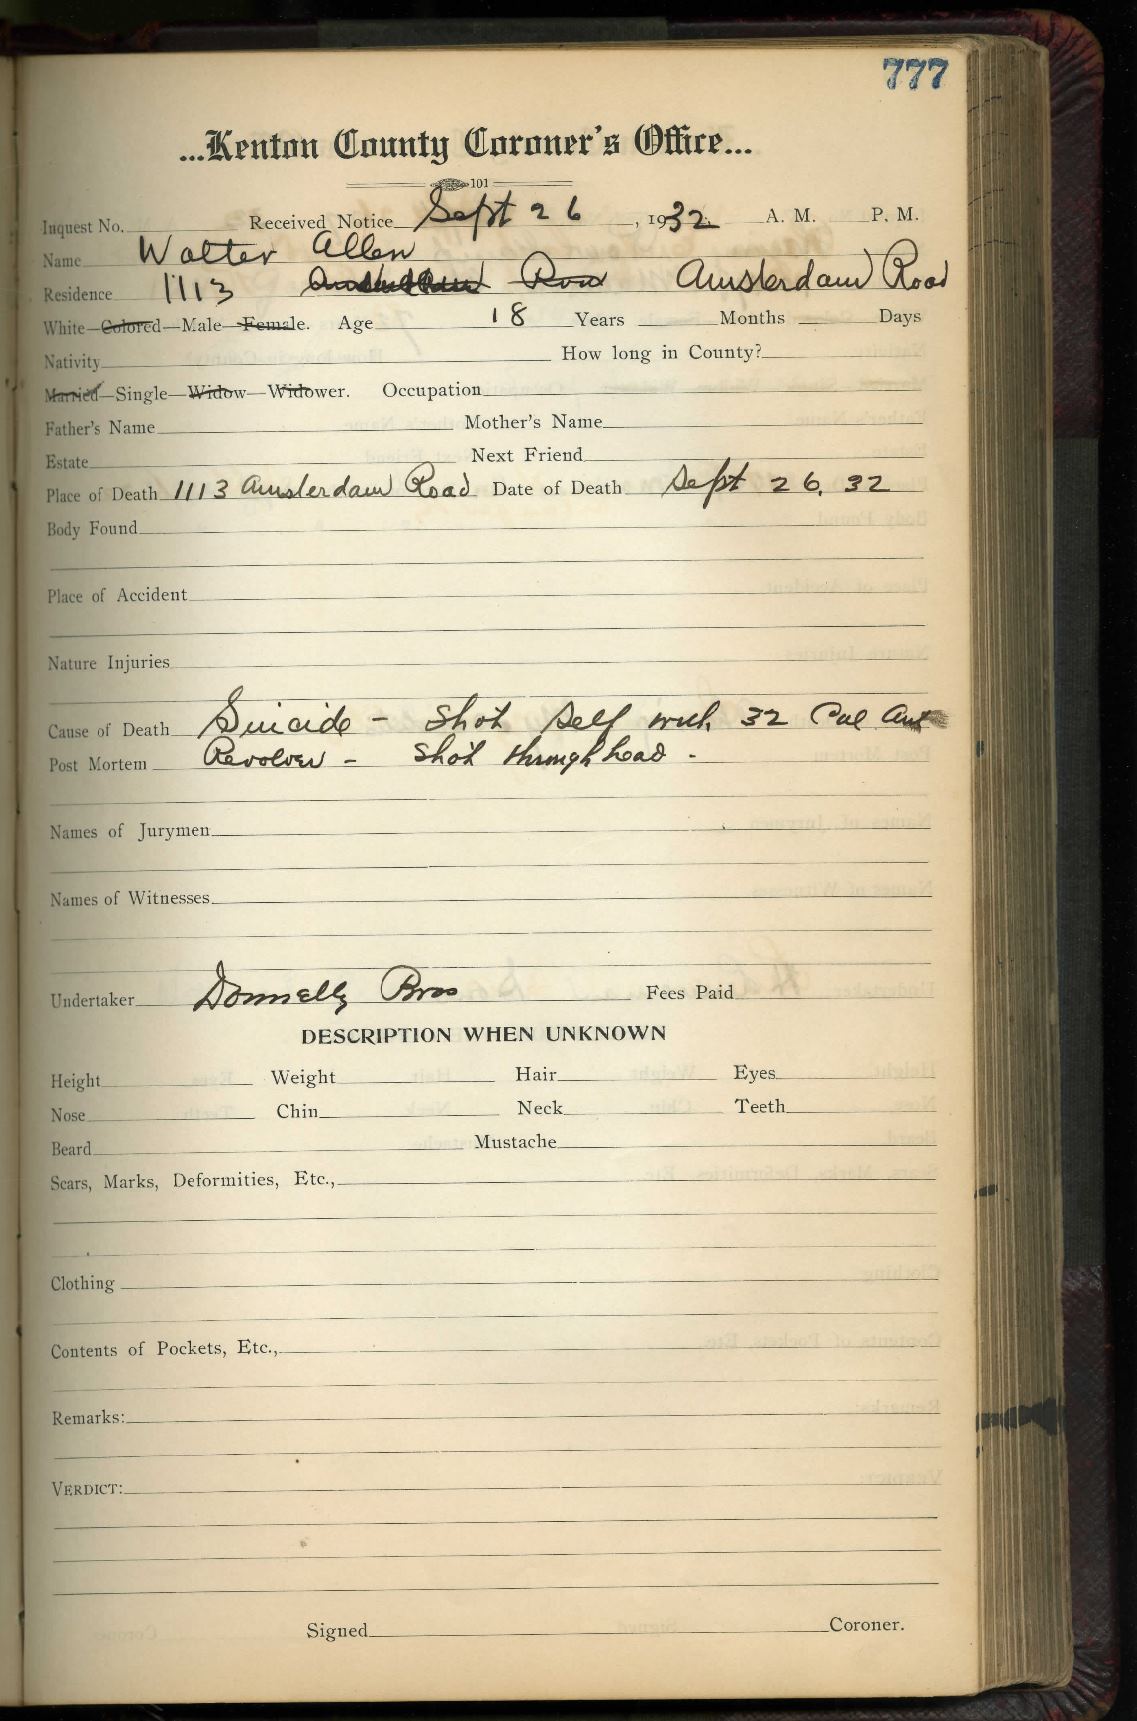 777
...Kenton County Coroner's Office...
101
Inquest No. Received Notice Sept 26, 1932. A. M. P. M.
Name Walter Allen
Residence 1113 Row Amsterdam Road
White—Colored—Male—Female. Age 18 Years Months Days
Nativity How long in County?
Married—Single—Widow—Widower. Occupation
Father's Name Mother's Name
Estate Next Friend
Place of Death 1113 Amsterdam Road Date of Death Sept 26, 32
Body Found
Place of Accident
Nature Injuries
Cause of Death Suicide - Shot Self with 32 Cal Aut
Post Mortem Revolver - Shot through head -
Names of Jurymen
Names of Witnesses
Undertaker Donnelly Bros Fees Paid
DESCRIPTION WHEN UNKNOWN
Height Weight Hair Eyes
Nose Chin Neck Teeth
Beard Mustache
Scars, Marks, Deformities, Etc.,
Clothing
Contents of Pockets, Etc.,
Remarks:
VERDICT:
Signed Coroner.